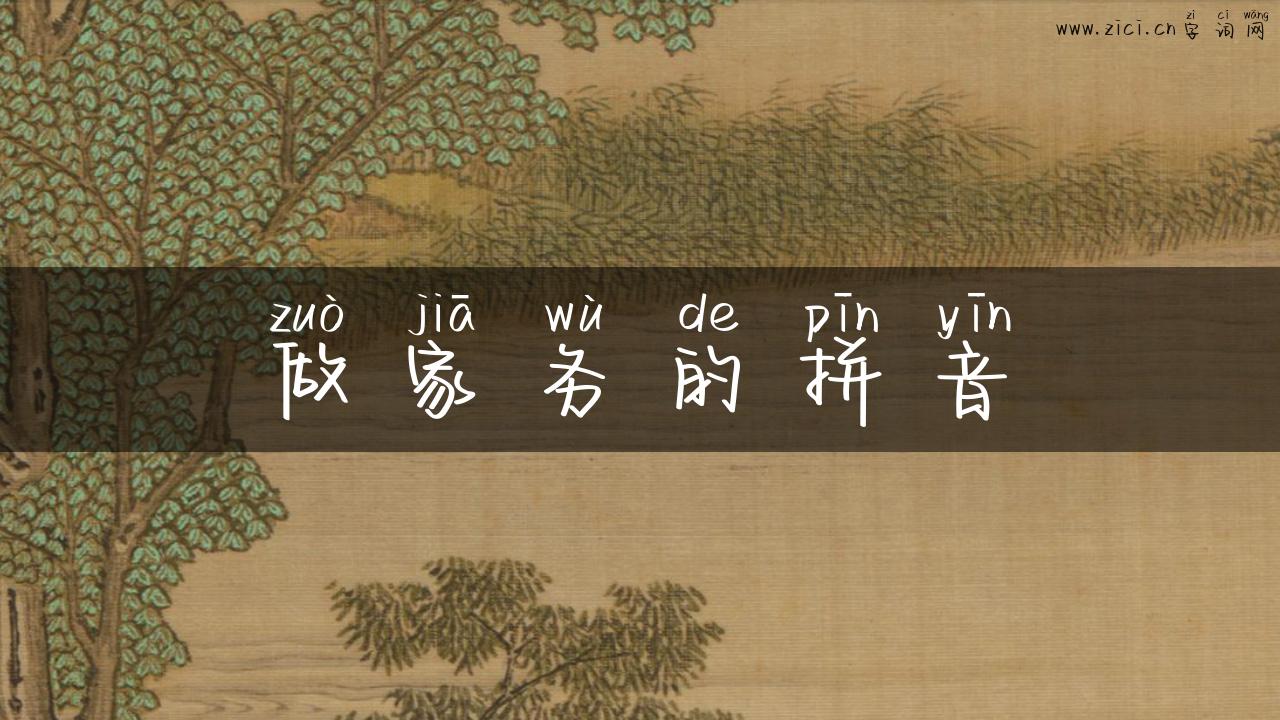 zì cí wǎng
www.zici.cn字词网
zuò jiā wù de pīn yīn
做家务的拼音